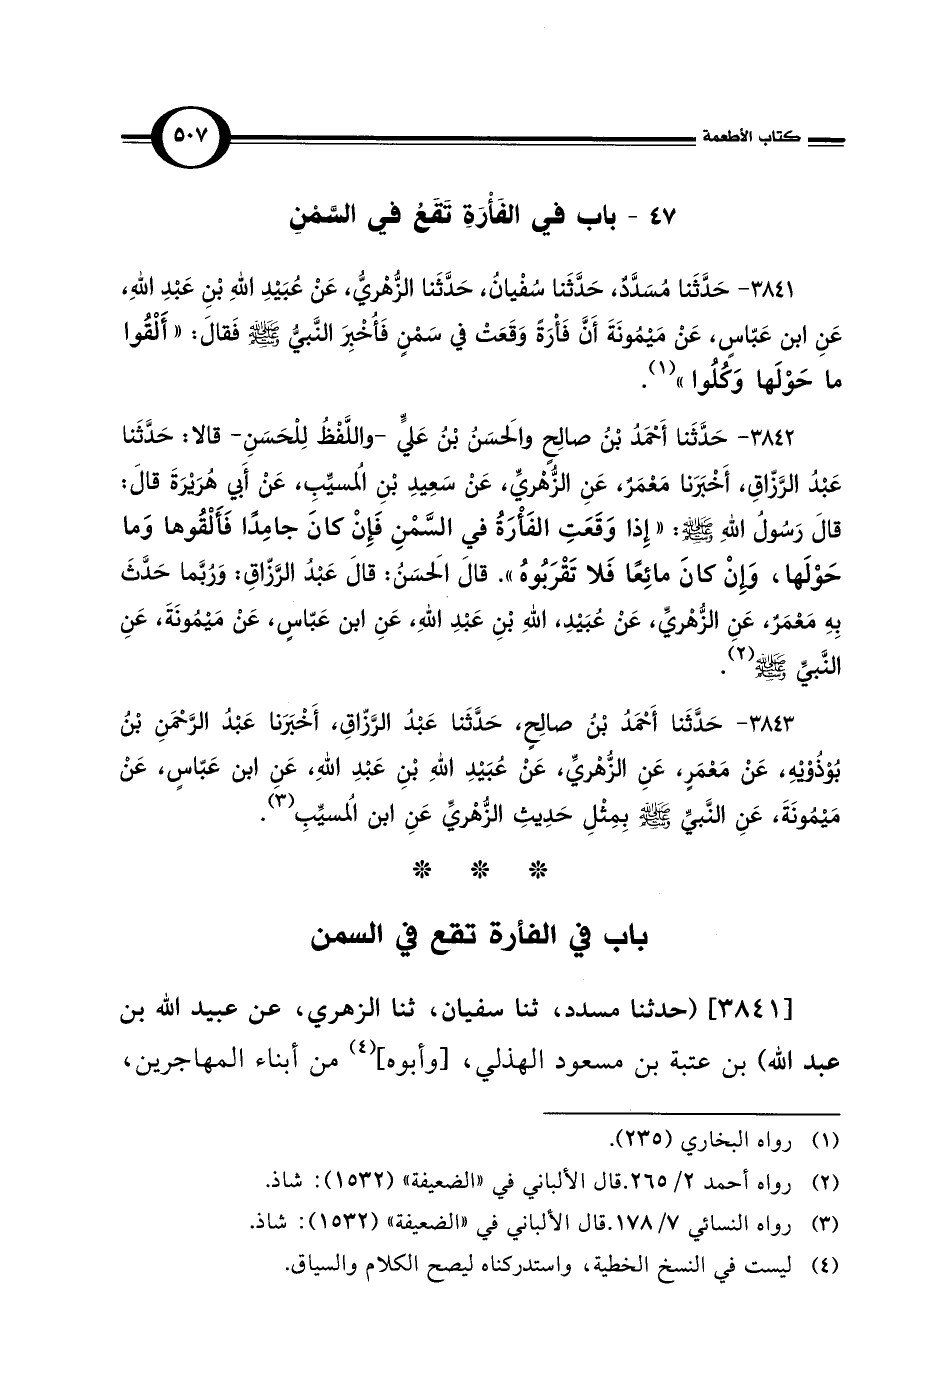 كتاب الأطعمة ٥٠٧
٤٧ - باب في الفَأْرَةِ تَقَعُ في السَّمْنِ
٣٨٤١- حَدَّثَنا مُسَدَّدٌ، حَدَّثَنا سُفْيانُ، حَدَّثَنا الزُّهْريُّ، عَنْ عُبَيْدِ اللهِ بْنِ عَبْدِ اللهِ،
عَنِ ابن عَبّاسٍ، عَنْ مَيْمُونَةَ أَنَّ فَأْرَةً وَقَعَتْ في سَمْنٍ فَأُخْبِرَ النَّبيُّ ﷺ فَقالَ: « أَلْقُوا
ما حَوْلَها وَكُلُوا »(١).
٣٨٤٢- حَدَّثَنا أَحْمَدُ بْنُ صالِحٍ والحَسَنُ بْنُ عَليٍّ -واللَّفْظُ لِلْحَسَنِ- قالا: حَدَّثَنا
عَبْدُ الرَّزّاقِ، أَخْبَرَنا مَعْمَرٌ، عَنِ الزُّهْريِّ، عَنْ سَعِيدِ بْنِ المُسيِّبِ، عَنْ أَبي هُرَيْرَةَ قالَ:
قالَ رَسُولُ اللهِ ﷺ: « إِذا وَقَعَتِ الفَأْرَةُ في السَّمْنِ فَإِنْ كانَ جامِدًا فَأَلْقُوها وَما
حَوْلَها، وَإِنْ كانَ مائِعًا فَلا تَقْرَبُوهُ ». قالَ الحَسَنُ: قالَ عَبْدُ الرَّزّاقِ: وَرُبَّما حَدَّثَ
بِهِ مَعْمَرٌ، عَنِ الزُّهْريِّ، عَنْ عُبَيْدِ، اللهِ بْنِ عَبْدِ اللهِ، عَنِ ابن عَبّاسٍ، عَنْ مَيْمُونَةَ، عَنِ
النَّبيِّ ﷺ(٢).
٣٨٤٣- حَدَّثَنا أَحْمَدُ بْنُ صالِحٍ، حَدَّثَنا عَبْدُ الرَّزّاقِ، أَخْبَرَنا عَبْدُ الرَّحْمَنِ بْنُ
بُوذُوَيْهِ، عَنْ مَعْمَرٍ، عَنِ الزُّهْريِّ، عَنْ عُبَيْدِ اللهِ بْنِ عَبْدِ اللهِ، عَنِ ابن عَبّاسٍ، عَنْ
مَيْمُونَةَ، عَنِ النَّبيِّ ﷺ بِمِثْلِ حَدِيثِ الزُّهْريِّ عَنِ ابن المُسيِّبِ(٣).
* * *
باب في الفأرة تقع في السمن
[٣٨٤١] (حدثنا مسدد، ثنا سفيان، ثنا الزهري، عن عبيد الله بن
عبد الله) بن عتبة بن مسعود الهذلي، [وأبوه](٤) من أبناء المهاجرين،
(١) رواه البخاري (٢٣٥).
(٢) رواه أحمد ٢/ ٢٦٥.قال الألباني في «الضعيفة» (١٥٣٢): شاذ.
(٣) رواه النسائي ٧/ ١٧٨.قال الألباني في «الضعيفة» (١٥٣٢): شاذ.
(٤) ليست في النسخ الخطية، واستدركناه ليصح الكلام والسياق.